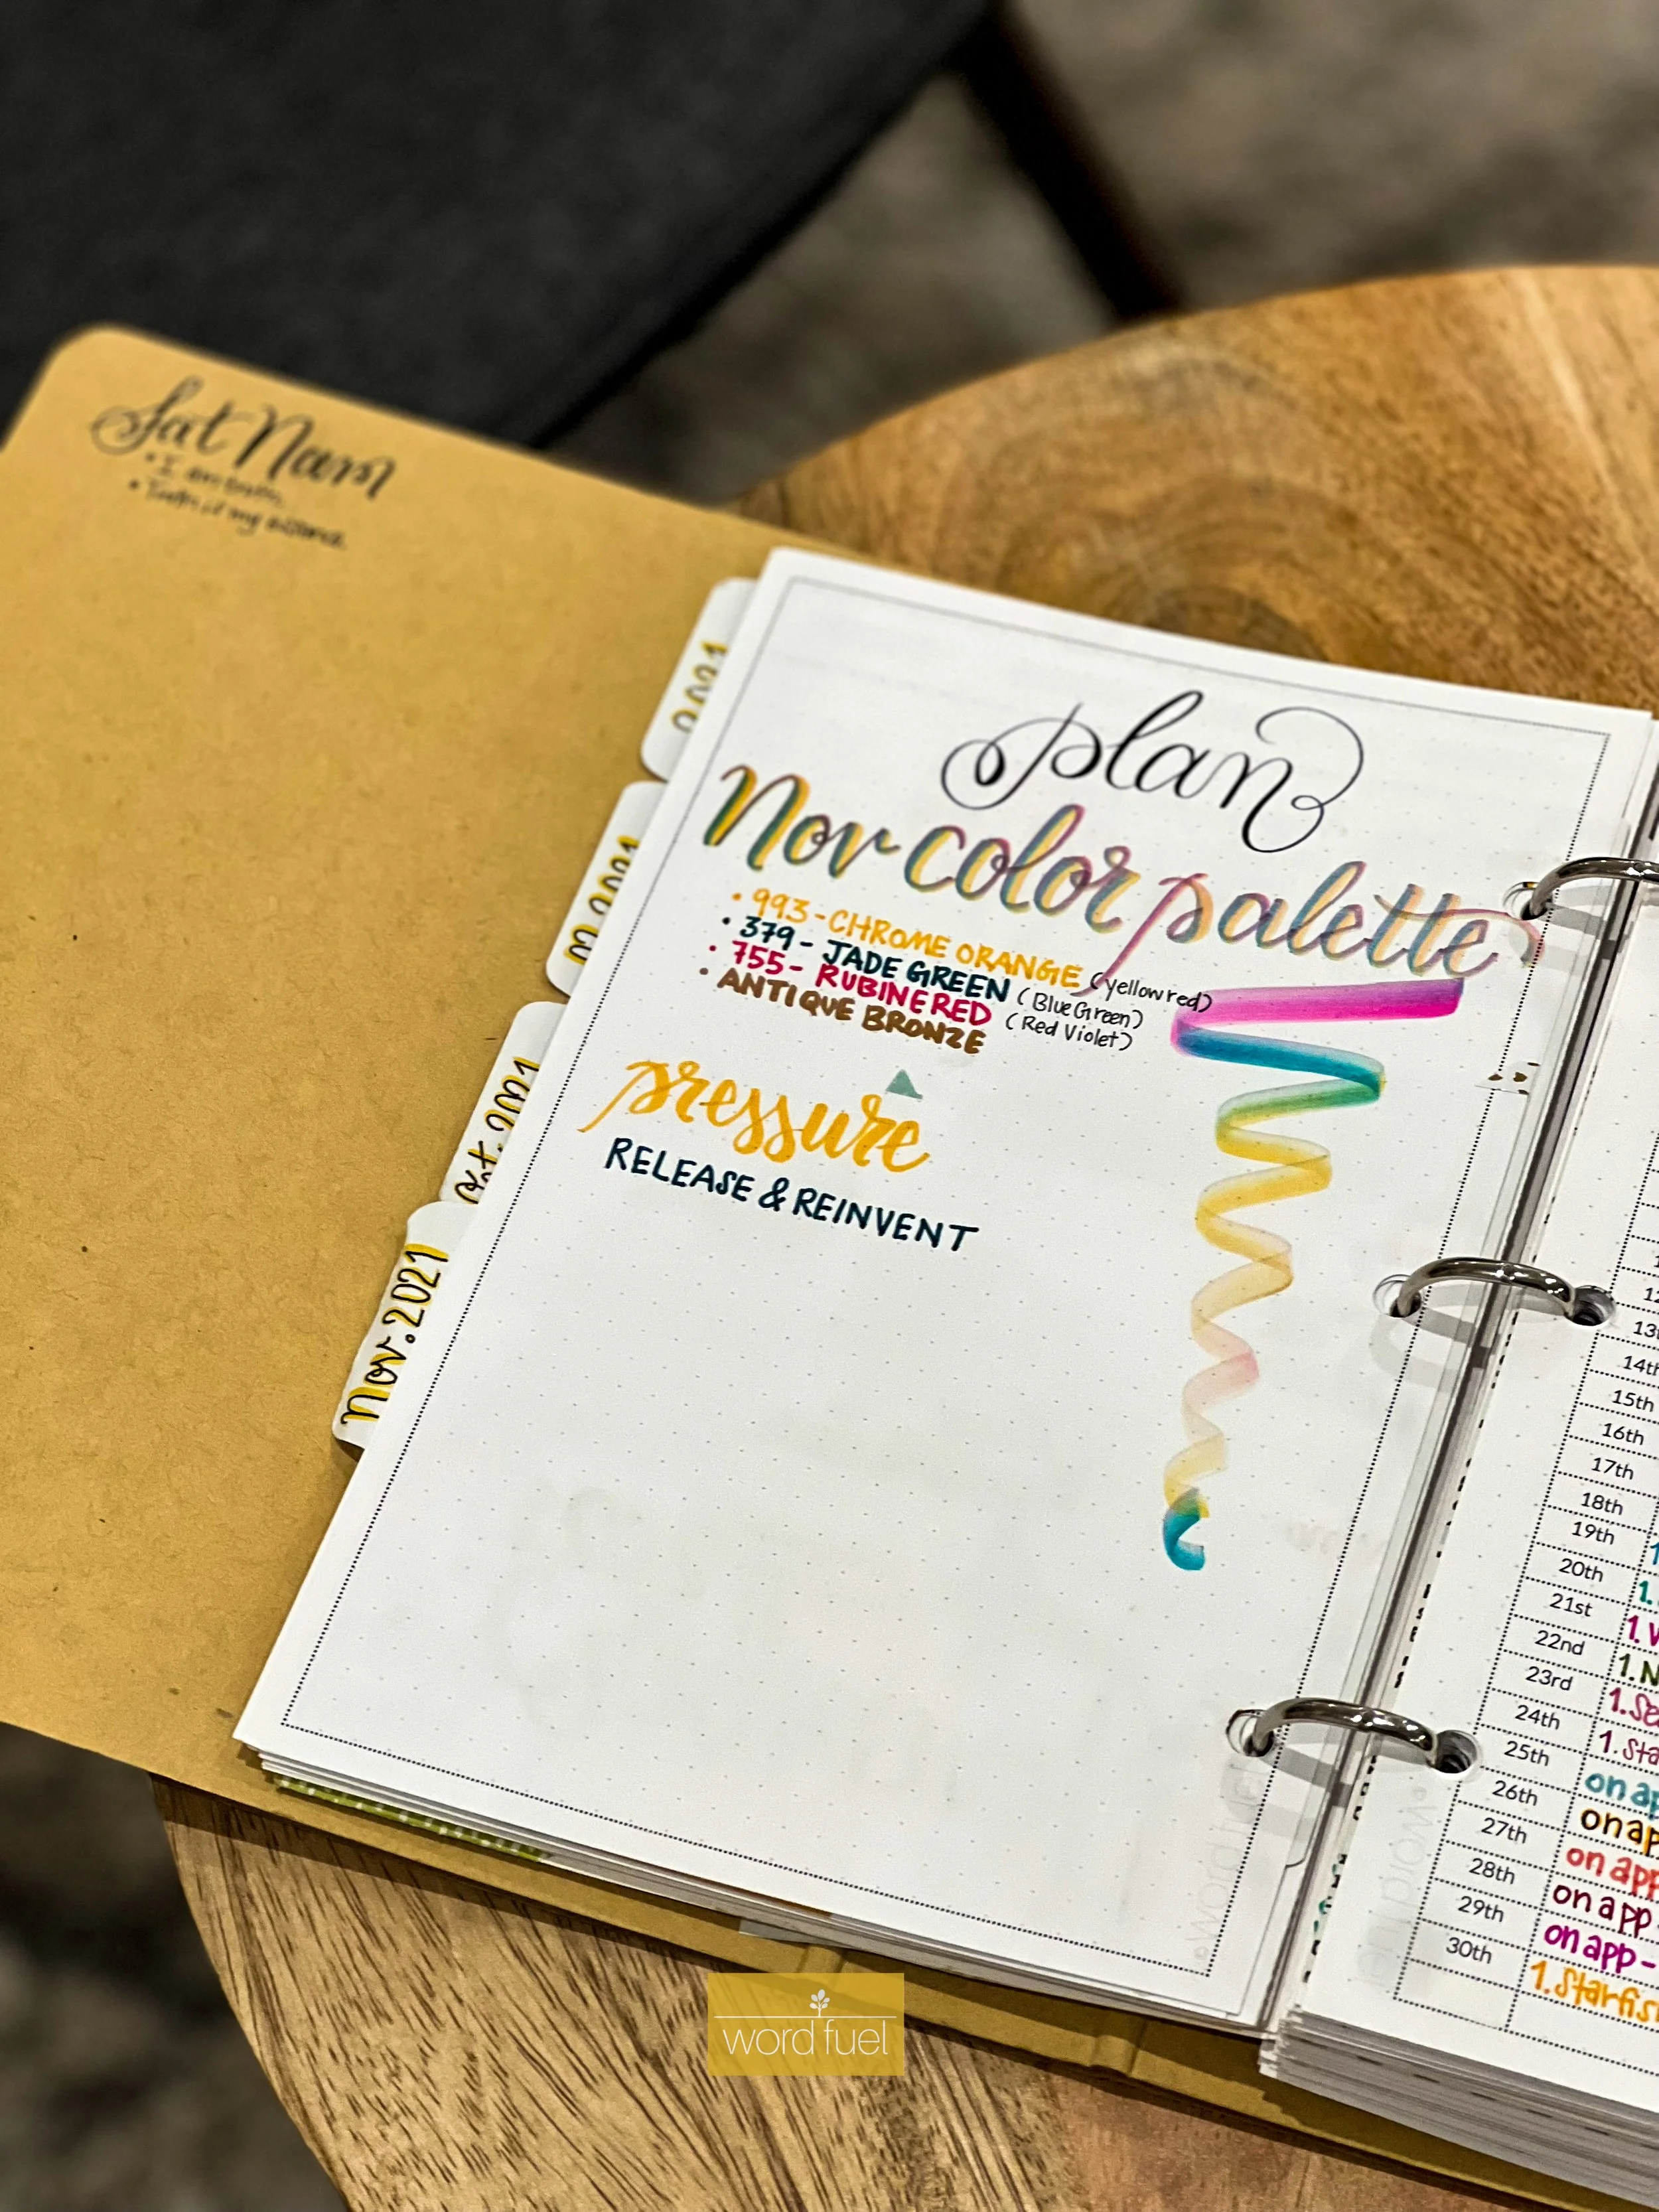 Sat Nam
• I am truth.
• Truth is my essence.
2021
2021
Oct. 2021
Nov. 2021
plan
Nov color palette
• 993 - CHROME ORANGE (yellow red)
• 379 - JADE GREEN (Blue Green)
• 755 - RUBINE RED (Red Violet)
• ANTIQUE BRONZE
pressure
RELEASE & REINVENT
14th
15th
16th
17th
18th
19th
20th 1.
21st 1.
22nd 1. N
23rd 1. Se
24th 1. Sta
25th on ap
26th on ap
27th on app
28th on app
29th on app -
30th 1. Starfis
word fuel